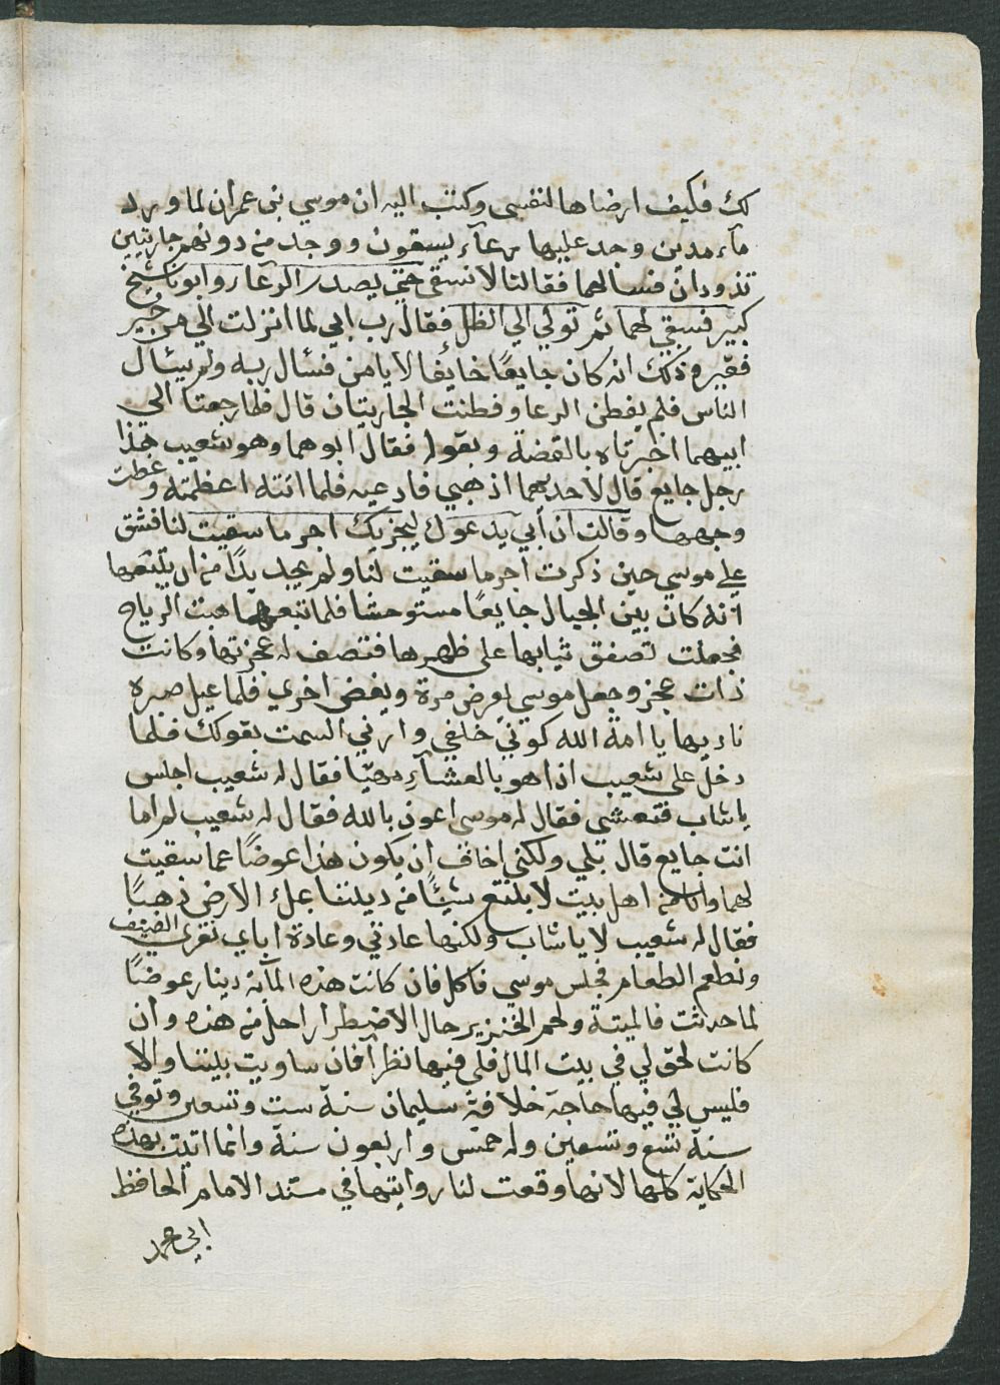 لك فكيف ارضاها لنفسي وكتب اليه ان موسي بن عمران لما ورد
مآء مدين وجد عليها رعآء يسقون ووجد من دونهم جاريتين
تذودان فسألهما فقالتا لا نسقي حتي يصدر الرعآء وابونا شيخ
كبير فسقي لهما ثم تولي الي الظل فقال رب اني لما انزلت الي من خير
فقير وذلك انه كان جايعًا خايفا لا يامن فسأل ربه ولم يسأل
الناس فلم يفطن الرعا وفطنت الجاريتان قال فلما رجعتا الي
ابيهما اخبرتاه بالقصة وبقوله فقال ابوهما وهو شعيب هذا
رجل جايع قال لاحديهما اذهبي فادعيه فلما اتته اعظمته وغطت
وجهها وقالت ان أبي يدعوك ليجزيك اجر ما سقيت لنا فشق
علي موسي حين ذكرت اجر ما سقيت لنا ولم يجد بدًا من ان يتبعها
انه كان بين الجبال جايعًا مستوحشا فلما تبعها هبت الرياح
فجعلت تصفق ثيابها علي ظهرها فتصف له عجزتها وكانت
ذات عجز وجعل موسي يعرض مرة ويغض اخري فلما عيل صبره
ناديها يا امة الله كوني خلفي وارني السمت بقولك فلما
دخل علي شعيب اذا هو بالعشآء مهيّا فقال له شعيب اجلس
يا شاب فتعشي فقال له موسي اعوذ بالله فقال له شعيب لم اما
انت جايع قال بلي ولكني اخاف ان يكون هذا عوضًا عما سقيت
لهما وانا من اهل بيت لا بلتع شيئًا من ديننا بملء الارض ذهبًا
فقال له شعيب لا يا شاب ولكنها عادتي وعادة اباي نقري الضيف
ونطعم الطعام فجلس موسي فاكل فان كانت هذه المآئة دينار عوضًا
لما حدثت فالميتة ولحم الخنزير حال الاضطرار احل من هذه وان
كانت لحق لي في بيت المال فلي فيها نظرآ فان ساويت بيننا والا
فليس لي فيها حاجة خلافة سليمان سنة ست وتسعين وتوفي
سنة تسع وتسعين وله خمس واربعون سنة وانما اتيت بهذه
الحكاية كلها لانها وقعت لنا روايتها في مسند الامام الحافظ
ابي محمد